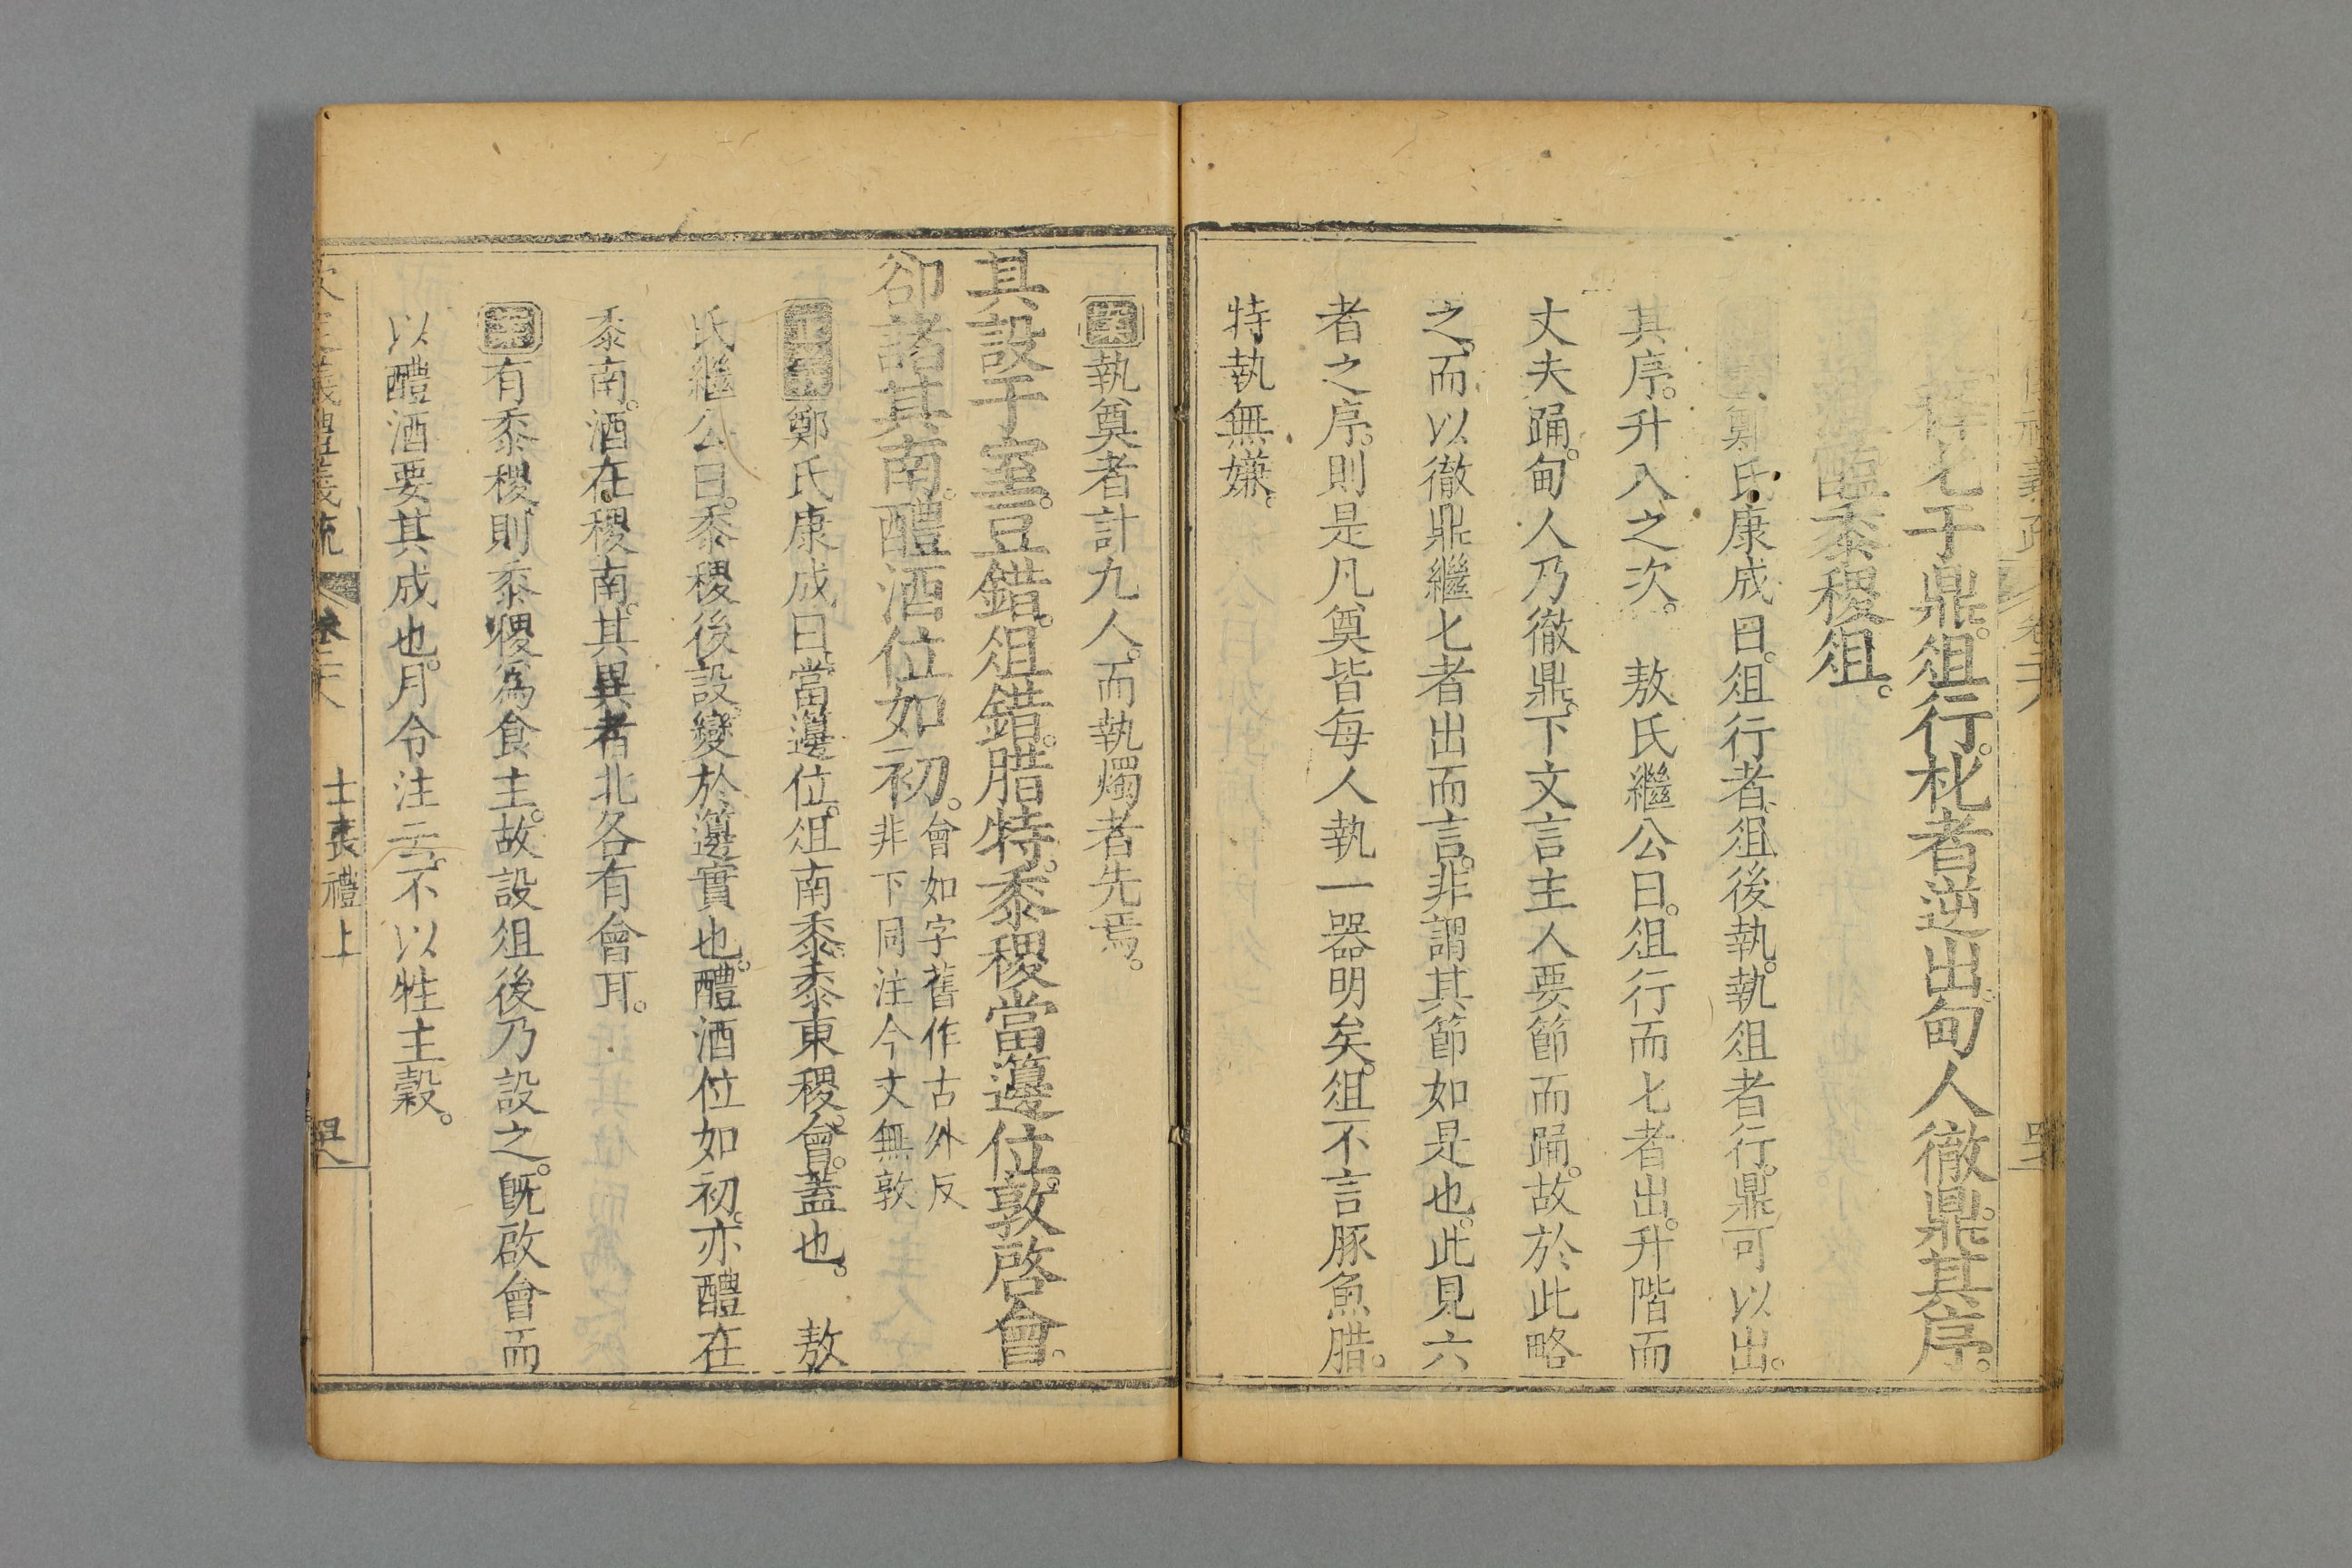 釋匕于鼎。俎行。朼者逆出。甸人徹鼎。其序。
醢黍稷俎。
鄭氏康成曰。俎行者。俎後執。執俎者行。鼎可以出。
其序。升入之次。 敖氏繼公曰。俎行而匕者出。升階而
丈夫踊。甸人乃徹鼎。下文言主人要節而踊。故於此略
之。而以徹鼎繼匕者出而言。非謂其節如是也。此見六
者之序。則是凡奠皆每人執一器明矣。俎不言豚魚腊。
特執無嫌。
案執奠者計九人。而執燭者先焉。
其設于室。豆錯。俎錯。腊特。黍稷當籩位。敦啓會。
卻諸其南。醴酒位如初。
會如字舊作古外反
非下同注今文無敦
正義鄭氏康成曰。當籩位。俎南黍。黍東稷。會。蓋也。 敖
氏繼公曰。黍稷後設。變於籩實也。醴酒位如初。亦醴在
黍南。酒在稷南。其異者北各有會耳。
案有黍稷。則黍稷爲食主。故設俎後乃設之。旣啟會而
以醴酒要其成也。月令注云。不以牲主穀。
義禮義疏 卷二十八 士喪禮上